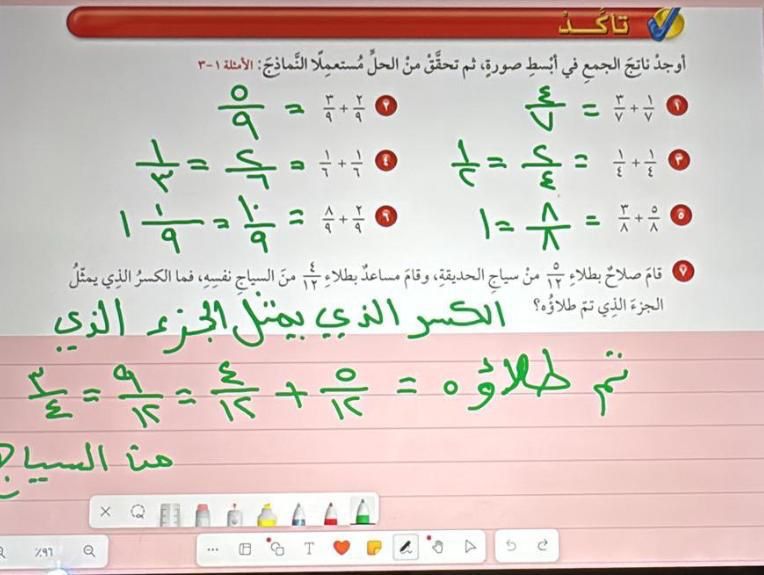 تأكد
أوجدُ ناتجَ الجمعِ في أبسطِ صورةٍ، ثم تحقَّقْ منْ الحلِّ مُستعملًا النَّماذِجَ: الأمثلة ١-٣
١ ١/٧ + ٣/٧ = ٤/٧
٢ ٢/٩ + ٣/٩ = ٥/٩
٣ ١/٤ + ١/٤ = ٢/٤ = ١/٢
٤ ١/٦ + ١/٦ = ٢/٦ = ١/٣
٥ ٥/٨ + ٣/٨ = ٨/٨ = ١
٦ ٢/٩ + ٨/٩ = ١٠/٩ = ١ ١/٩
٧ قامَ صلاحٌ بطلاءِ ٥/١٢ منْ سياجِ الحديقةِ، وقامَ مساعدٌ بطلاءِ ٤/١٢ منَ السياجِ نفسِهِ، فما الكسرُ الذي يمثّلُ
الجزءَ الذي تمّ طلاؤُه؟
الكسر الذي يمثل الجزء الذي
تم طلاؤه = ٥/١٢ + ٤/١٢ = ٩/١٢ = ٣/٤
من السياج
٪٩٦